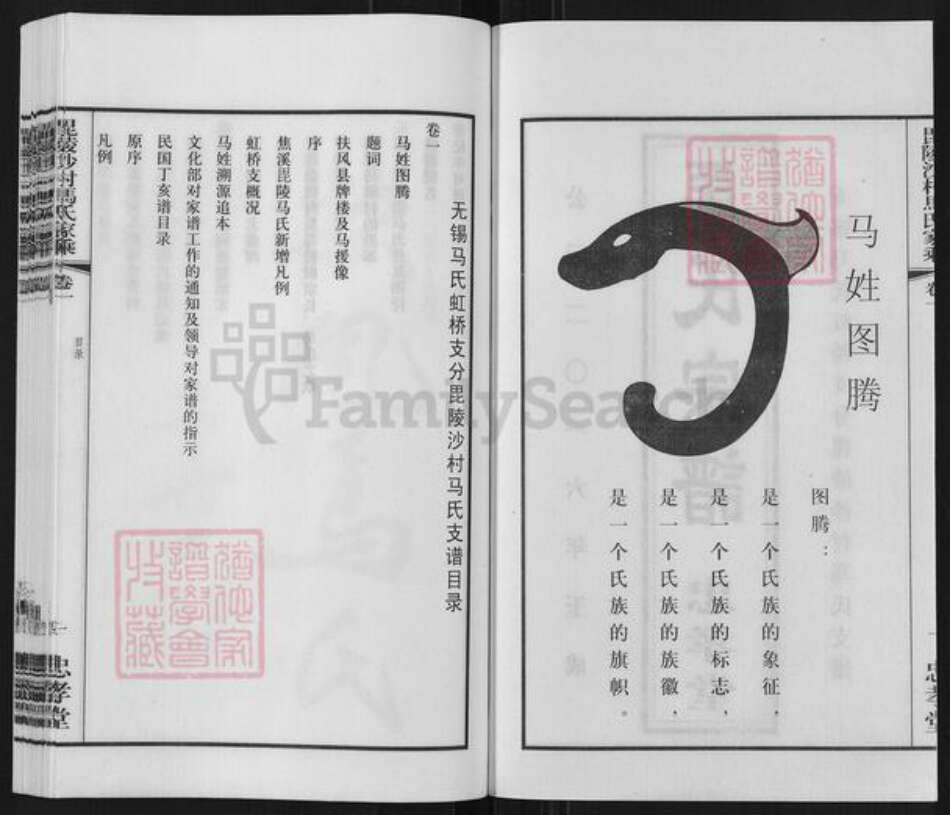 马姓图腾
图腾：
是一个氏族的象征，
是一个氏族的标志，
是一个氏族的族徽，
是一个氏族的旗帜。
忠孝堂
无锡马氏虹桥支分毘陵沙村马氏支谱目录
卷一
马姓图腾
题词
扶风县牌楼及马援像
序
焦溪毘陵马氏新增凡例
虹桥支概况
马姓溯源追本
文化部对家谱工作的通知及领导对家谱的指示
民国丁亥谱目录
原序
凡例
毘陵沙村馬氏家乘
卷一
目录
一
忠孝堂
FamilySearch